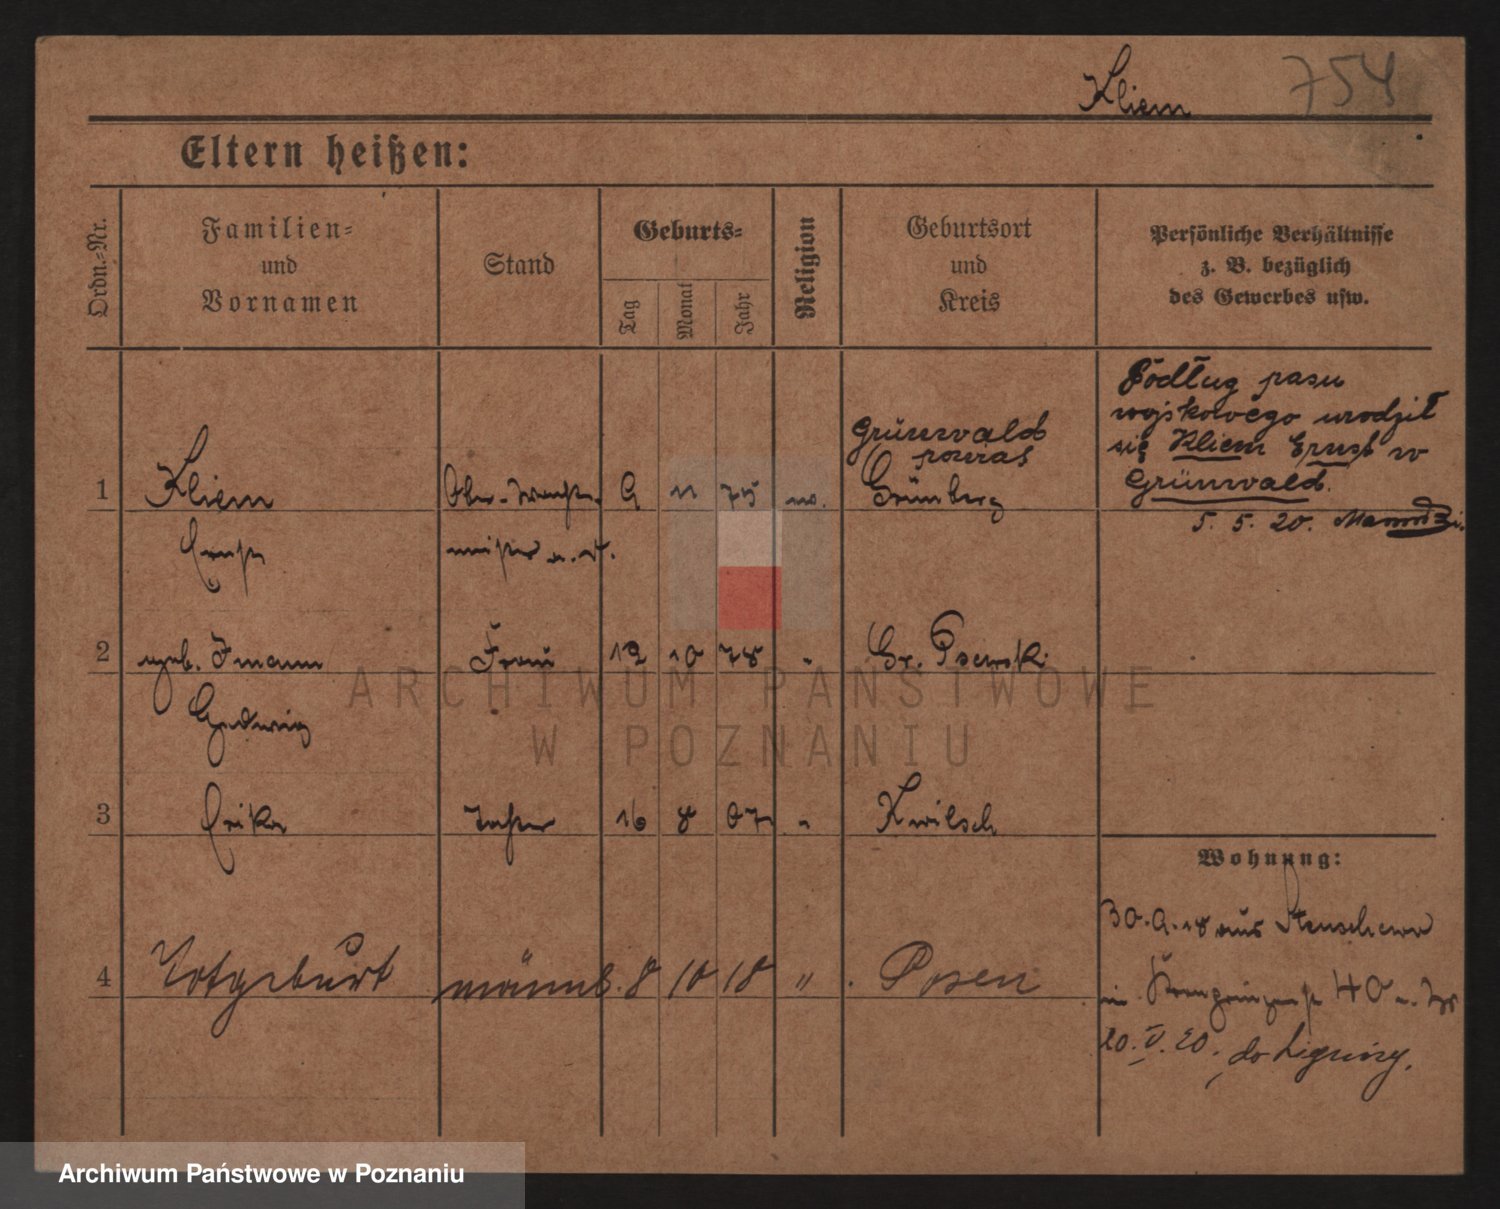 Kliem 754
Eltern heißen:
Ordn.-Nr.
Familien-
und
Vornamen
Stand
Geburts-
Tag
Monat
Jahr
Religion
Geburtsort
und
Kreis
Persönliche Verhältnisse
z. B. bezüglich
des Gewerbes usw.
Pódług pasu
wojskowego urodził
się Kliem Ernst w
Grünwald.
5. 5. 20.
Grünwald
powiat
1 Kliem Ober-Wacht- 9 11 75 Grünberg
Ernst meister a. D.
2 geb. Frau 12 10 78 " Gr. Psarski
Hedwig
3 Erika Tochter 16 8 07 " Kwilsch
Wohnung:
30.9.18 aus
4 Totgeburt männl. 8 10 18 " Posen
in Kronprinzenst 40
20.V.20. do Lignicy.
ARCHIWUM PAŃSTWOWE
W POZNANIU
Archiwum Państwowe w Poznaniu